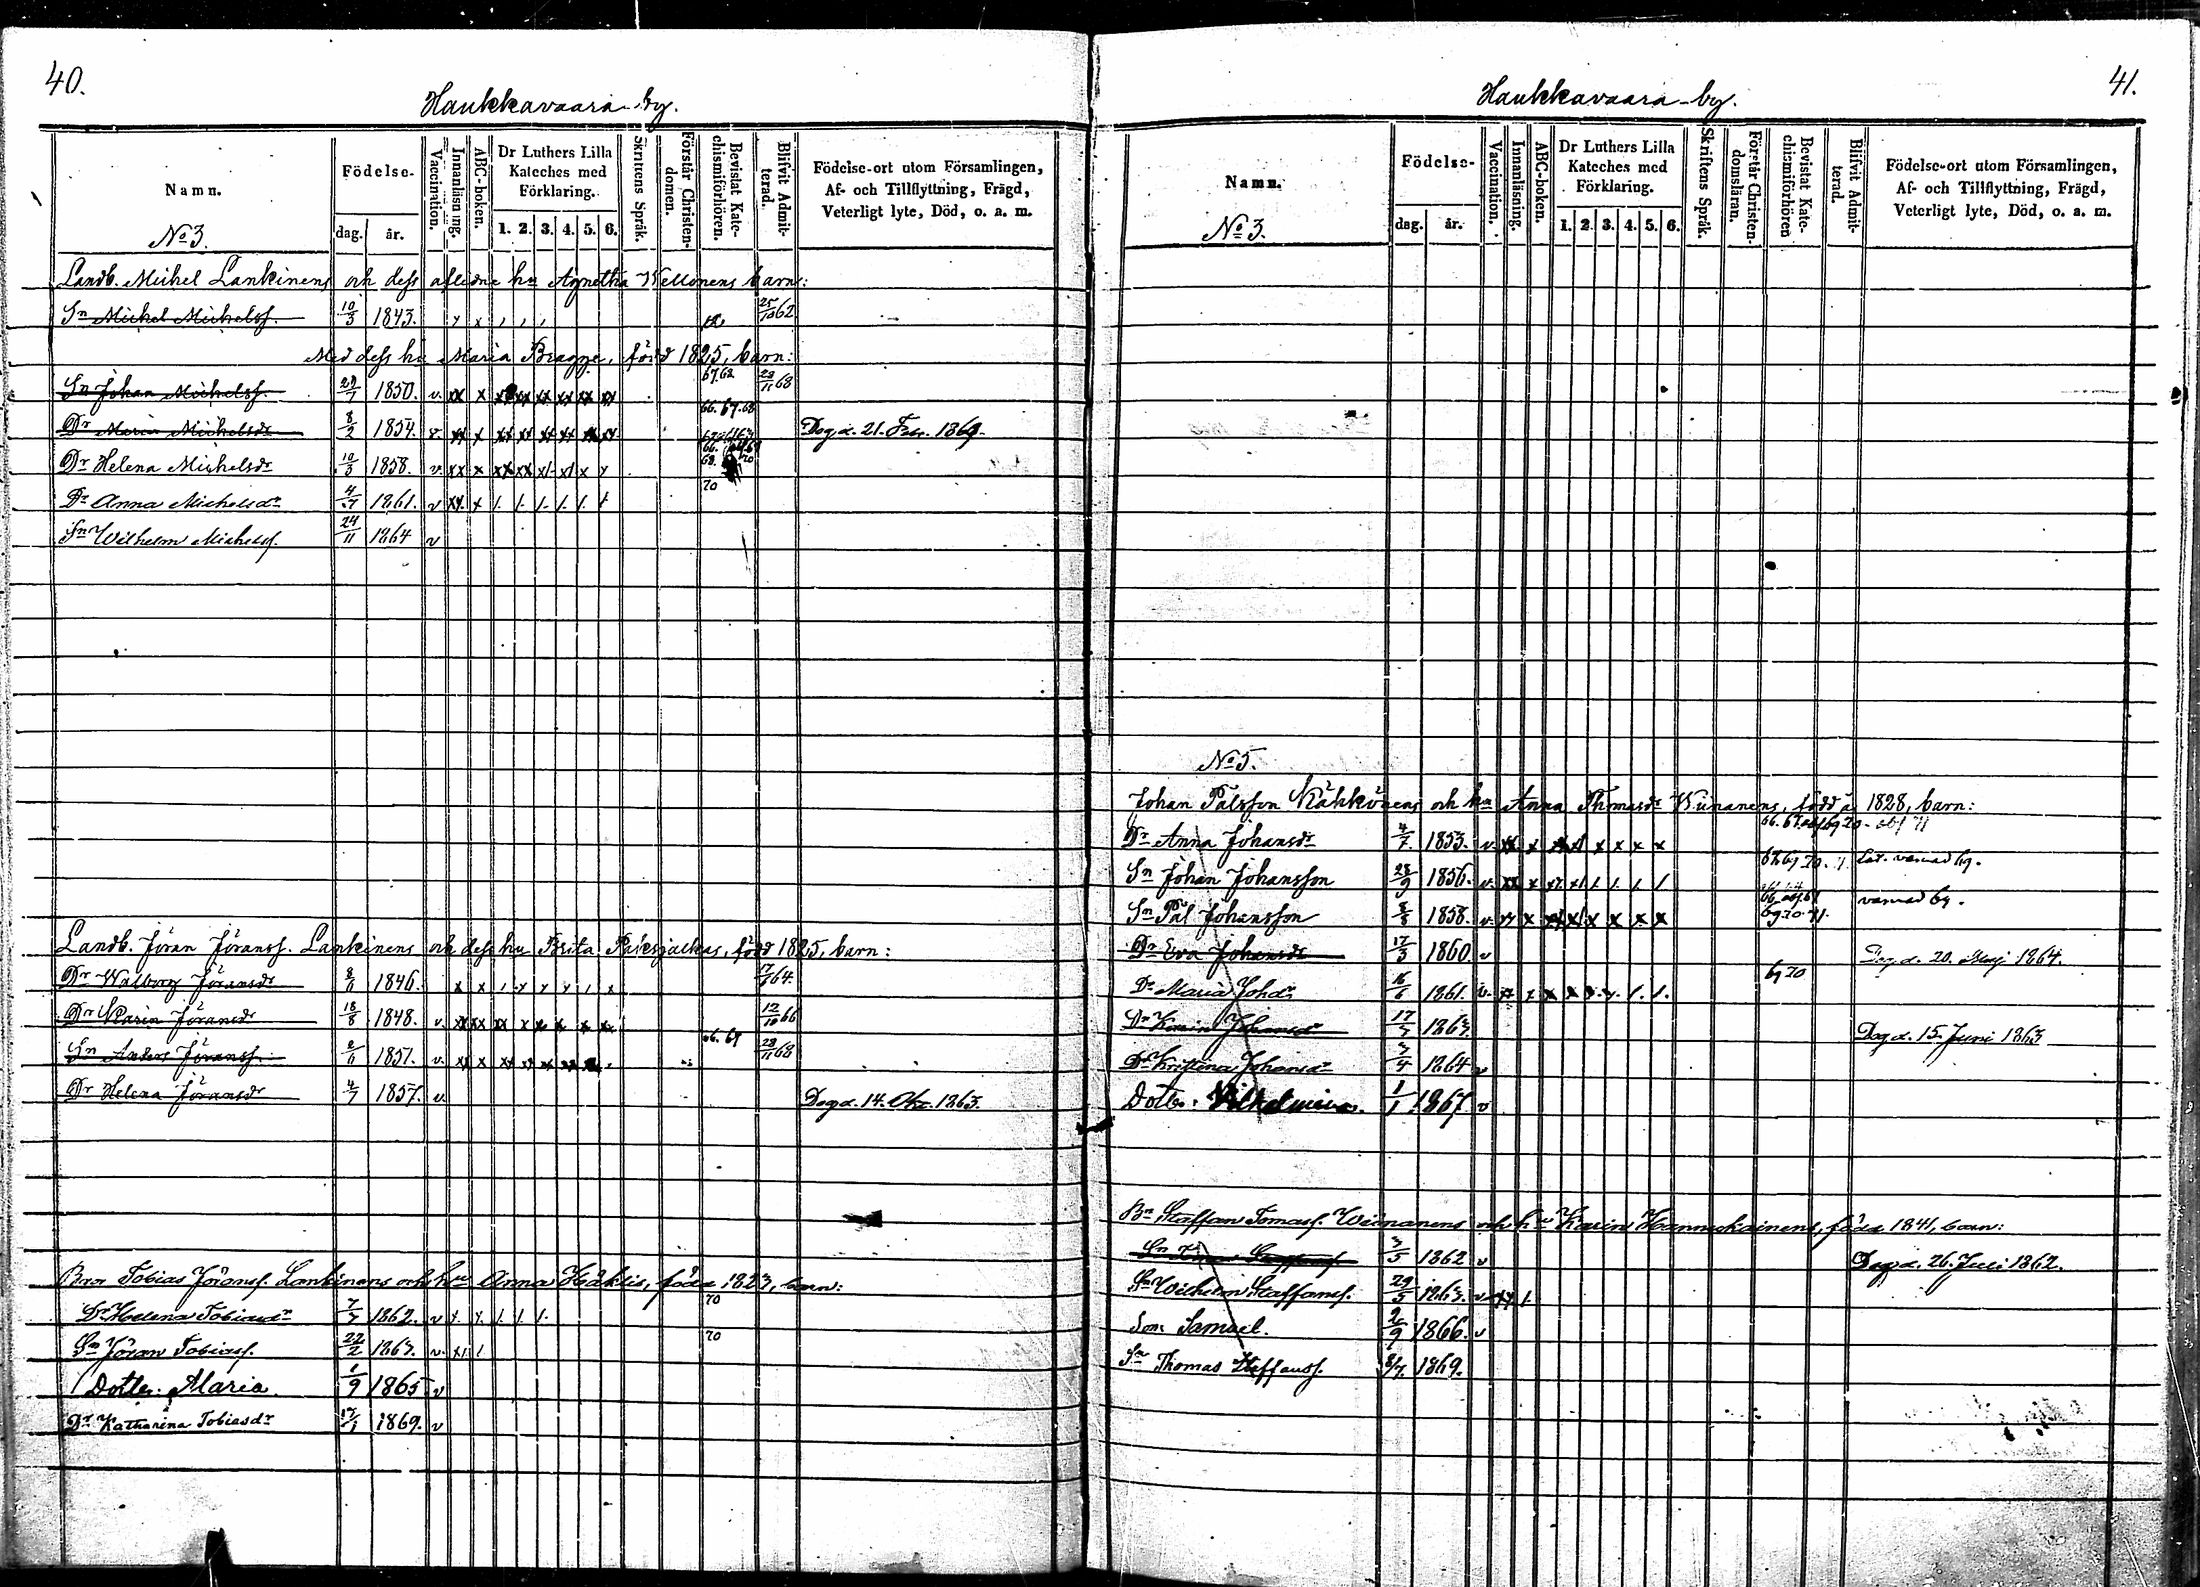 40.
Haukkavaara by.
Namn.
Födelse-
dag. år.
Vaccination.
Innanläsning.
ABC-boken.
Dr Luthers Lilla Kateches med Förklaring.
1. 2. 3. 4. 5. 6.
Skriftens Språk.
Förstår Christen-domen.
Bevistat Kate-chismiförhören.
Blifvit Admit-terad.
Födelse-ort utom Församlingen,
Af- och Tillflyttning, Frägd,
Veterligt lyte, Död, o. a. m.
No 3.
Landb. Michel Lankinens och dess aflidne hu Agnetha Wellonens barn:
Sn Michel Michelss. 10/3 1843. 25/10 62
Med dess hu Maria Bragge, född 1825, barn:
Sn Johan Michelss. 29/7 1850. v. 67.68 29/11 68
Dr Maria Michelsdr 8/2 1854. v. 66. 67. 68 Dog d. 21. Febr. 1869.
Dr Helena Michelsdr 10/3 1858. v. 68. 70
Dr Anna Michelsdr 1861. v 70
Sn Wilhelm Michelss. 24/11 1864 v
Landb. Jöran Jöranss. Lankinens och dess hu Brita, född 1825, barn:
Dr Walborg Jöransdr 8/6 1846. 64.
Dr Karin Jöransdr 18/8 1848. v. 12/10 66
Sn Anders Jöranss. 1851. v. 66. 67 28/11 68
Dr Helena Jöransdr 4/7 1857. v. Dog d. 14. 1863.
Bror Tobias Jöranss. Lankinens och hu Anna Häklis, född 1823, barn:
Dr Helena Tobiasdr 1862. v 70
Sn Jöran Tobiass. 22/2 1863. v. 70
Dotter: Maria. 1/9 1865 v
Dr Katharina Tobiasdr 1869. v
41.
Haukkavaara by.
Namn.
Födelse-
dag. år.
Vaccination.
Innanläsning.
ABC-boken.
Dr Luthers Lilla Kateches med Förklaring.
1. 2. 3. 4. 5. 6.
Skriftens Språk.
Förstår Christen-domsläran.
Bevistat Kate-chismiförhören
Blifvit Admit-terad.
Födelse-ort utom Församlingen,
Af- och Tillflyttning, Frägd,
Veterligt lyte, Död, o. a. m.
No 3.
No 5.
Johan Pålsson Näkkönens och hu Anna Thomasdr Wiinanens, född å 1828, barn:
Dr Anna Johansdr 4/7 1853. v.
Sn Johan Johansson 28/9 1856. v. varnad 69.
Sn Pål Johansson 8/8 1858. v. 69.70.71. varnad 69.
Dr Eva Johansdr 17/3 1860. v Dog d. 20. Maj 1864.
Dr Maria Johdr 16/6 1861. v. 69 70
Dr Karin Johansdr 1863. Dog d. 15. Juni 1863
Dr Kristina Johansdr 3/4 1864 v
Dotter: Vilhelmina. 1/1 1867 v
Br Staffan Tomass. Wiinanens och hu Karin Hannukainens, född 1841, barn:
Sn Staffanss. 3/5 1862 v Dog d. 26. Juli 1862.
Sn Wilhelm Staffanss. 29/5 1863. v.
Son Samuel. 2/9 1866. v
Sn Thomas Staffanss. 8/7. 1869.